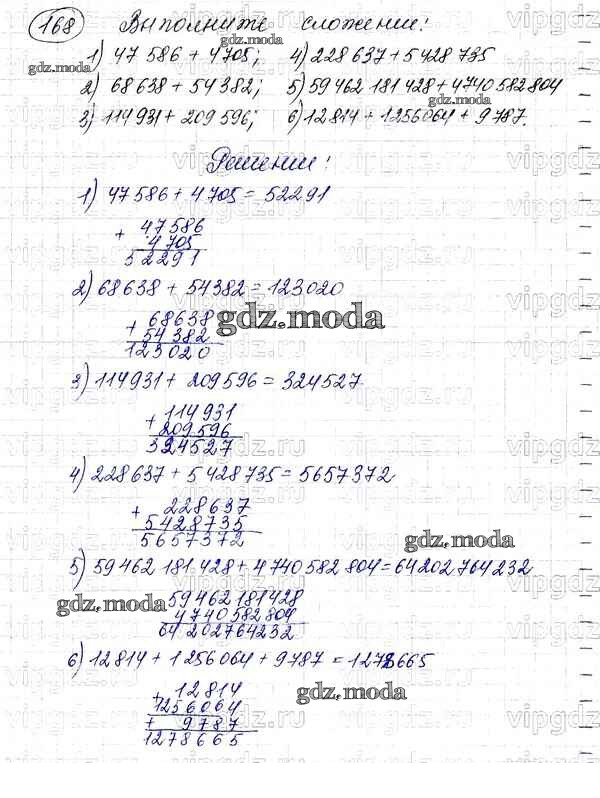 168 Выполните сложение:
1) 47 586 + 4705; 4) 228 637 + 5 428 735
gdz.moda
2) 68 638 + 54 382; 5) 59 462 181 428 + 4 740 582 804
gdz.moda
3) 114 931 + 209 596; 6) 12 814 + 1 256 064 + 9 787.
vipgdz.ru
Решение:
1) 47 586 + 4 705 = 52291
+ 47586
4705
52291
2) 68638 + 54382 = 123020
+ 68638
54382
123020
gdz.moda
3) 114931 + 209596 = 324527
+ 114931
209596
324527
vipgdz.ru
4) 228637 + 5 428 735 = 5657372
+ 228637
5428735
5657372
gdz.moda
5) 59 462 181 428 + 4 740 582 804 = 64 202 764 232
gdz.moda
59462181428
4740582804
64 202764232
6) 12 814 + 1 256 064 + 9787 = 1278665
gdz.moda
+ 12814
1256064
+ 9787
1278665
vipgdz.ru